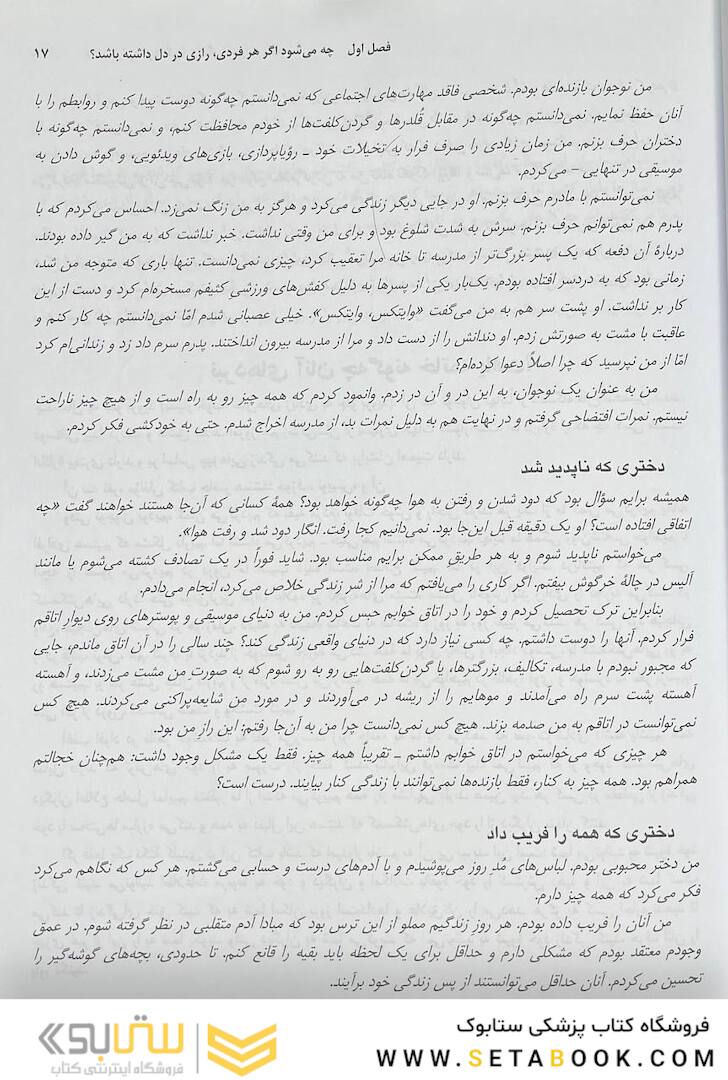 فصل اول   چه می‌شود اگر هر فردی، رازی در دل داشته باشد؟   ۱۷
من نوجوان بازنده‌ای بودم. شخصی فاقد مهارت‌های اجتماعی که نمی‌دانستم چگونه دوست پیدا کنم و روابطم را با
آنان حفظ نمایم. نمی‌دانستم چگونه در مقابل قُلدرها و گردن‌کلفت‌ها از خودم محافظت کنم، و نمی‌دانستم چگونه با
دختران حرف بزنم. من زمان زیادی را صرف فرار به تخیلات خود ــ رؤیاپردازی، بازی‌های ویدئویی، و گوش دادن به
موسیقی در تنهایی – می‌کردم.
نمی‌توانستم با مادرم حرف بزنم. او در جایی دیگر زندگی می‌کرد و هرگز به من زنگ نمی‌زد. احساس می‌کردم که با
پدرم هم نمی‌توانم حرف بزنم. سرش به شدت شلوغ بود و برای من وقتی نداشت. خبر نداشت که به من گیر داده بودند.
دربارهٔ آن دفعه که یک پسر بزرگ‌تر از مدرسه تا خانه مرا تعقیب کرد، چیزی نمی‌دانست. تنها باری که متوجه من شد،
زمانی بود که به دردسر افتاده بودم. یک‌بار یکی از پسرها به دلیل کفش‌های ورزشی کثیفم مسخره‌ام کرد و دست از این
کار بر نداشت. او پشت سر هم به من می‌گفت «وایتکس، وایتکس». خیلی عصبانی شدم امّا نمی‌دانستم چه کار کنم و
عاقبت با مشت به صورتش زدم. او دندانش را از دست داد و مرا از مدرسه بیرون انداختند. پدرم سرم داد زد و زندانی‌ام کرد
امّا از من نپرسید که چرا اصلاً دعوا کرده‌ام؟
من به عنوان یک نوجوان، به این در و آن در زدم. وانمود کردم که همه چیز رو به راه است و از هیچ چیز ناراحت
نیستم. نمرات افتضاحی گرفتم و در نهایت هم به دلیل نمرات بد، از مدرسه اخراج شدم. حتی به خودکشی فکر کردم.
دختری که ناپدید شد
همیشه برایم سؤال بود که دود شدن و رفتن به هوا چه‌گونه خواهد بود؟ همهٔ کسانی که آن‌جا هستند خواهند گفت «چه
اتفاقی افتاده است؟ او یک دقیقه قبل این‌جا بود. نمی‌دانیم کجا رفت. انگار دود شد و رفت هوا».
می‌خواستم ناپدید شوم و به هر طریقِ ممکن برایم مناسب بود. شاید فوراً در یک تصادف کشته می‌شوم یا مانند
آلیس در چالهٔ خرگوش بیفتم. اگر کاری را می‌یافتم که مرا از شر زندگی خلاص می‌کرد، انجام می‌دادم.
بنابراین ترک تحصیل کردم و خود را در اتاق خوابم حبس کردم. من به دنیای موسیقی و پوسترهای روی دیوار اتاقم
فرار کردم. آنها را دوست داشتم. چه کسی نیاز دارد که در دنیای واقعی زندگی کند؟ چند سالی را در آن اتاق ماندم، جایی
که مجبور نبودم با مدرسه، تکالیف، بزرگترها، یا گردن‌کلفت‌هایی رو به رو شوم که به صورتِ من مشت می‌زدند، و آهسته
آهسته پشت سرم راه می‌آمدند و موهایم را از ریشه در می‌آوردند و در مورد من شایعه‌پراکنی می‌کردند. هیچ کس
نمی‌توانست در اتاقم به من صدمه بزند. هیچ کس نمی‌دانست چرا من به آن‌جا رفتم: این رازِ من بود.
هر چیزی که می‌خواستم در اتاق خوابم داشتم ــ تقریباً همه چیز. فقط یک مشکل وجود داشت: هم‌چنان خجالتم
همراهم بود. همه چیز به کنار، فقط بازنده‌ها نمی‌توانند با زندگی کنار بیایند. درست است؟
دختری که همه را فریب داد
من دختر محبوبی بودم. لباس‌های مُد روز می‌پوشیدم و با آدم‌های درست و حسابی می‌گشتم. هر کس که نگاهم می‌کرد
فکر می‌کرد که همه چیز دارم.
من آنان را فریب داده بودم. هر روزِ زندگیم مملو از این ترس بود که مبادا آدم متقلبی در نظر گرفته شوم. در عمق
وجودم معتقد بودم که مشکلی دارم و حداقل برای یک لحظه باید بقیه را قانع کنم. تا حدودی، بچه‌های گوشه‌گیر را
تحسین می‌کردم. آنان حداقل می‌توانستند از پس زندگی خود برآیند.
فروشگاه کتاب پزشکی ستابوک
WWW.SETABOOK.COM
ستابوک
فروشگاه اینترنتی کتاب